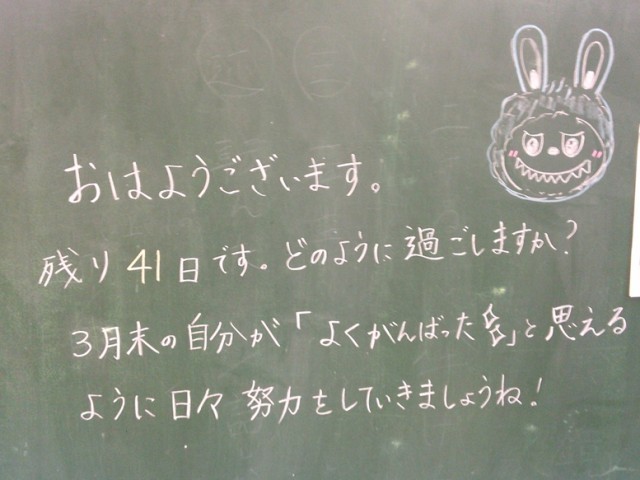 おはようございます。
残り41日です。どのように過ごしますか?
3月末の自分が「よくがんばった」と思える
ように日々努力をしていきましょうね!